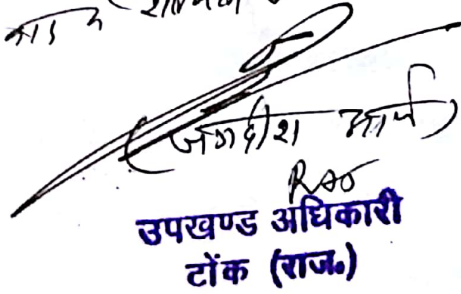 (जगदीश आर्य)
RAS
उपखण्ड अधिकारी
टोंक (राज.)